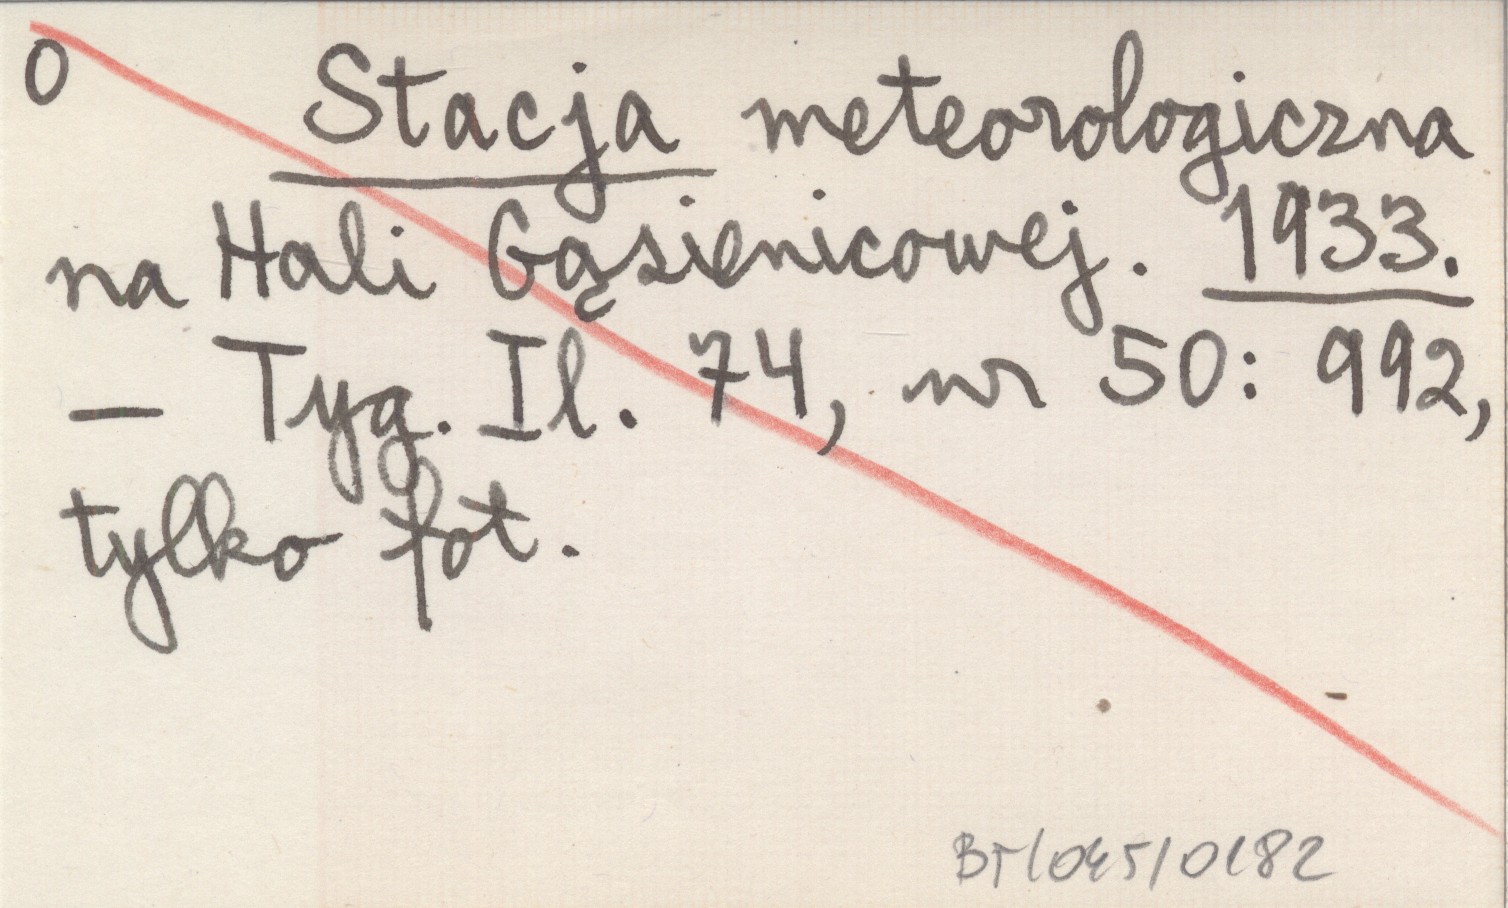 0 Stacja meteorologiczna
na Hali Gąsienicowej. 1933.
— Tyg. Il. 74, nr 50: 992,
tylko fot.
BT/045/0182